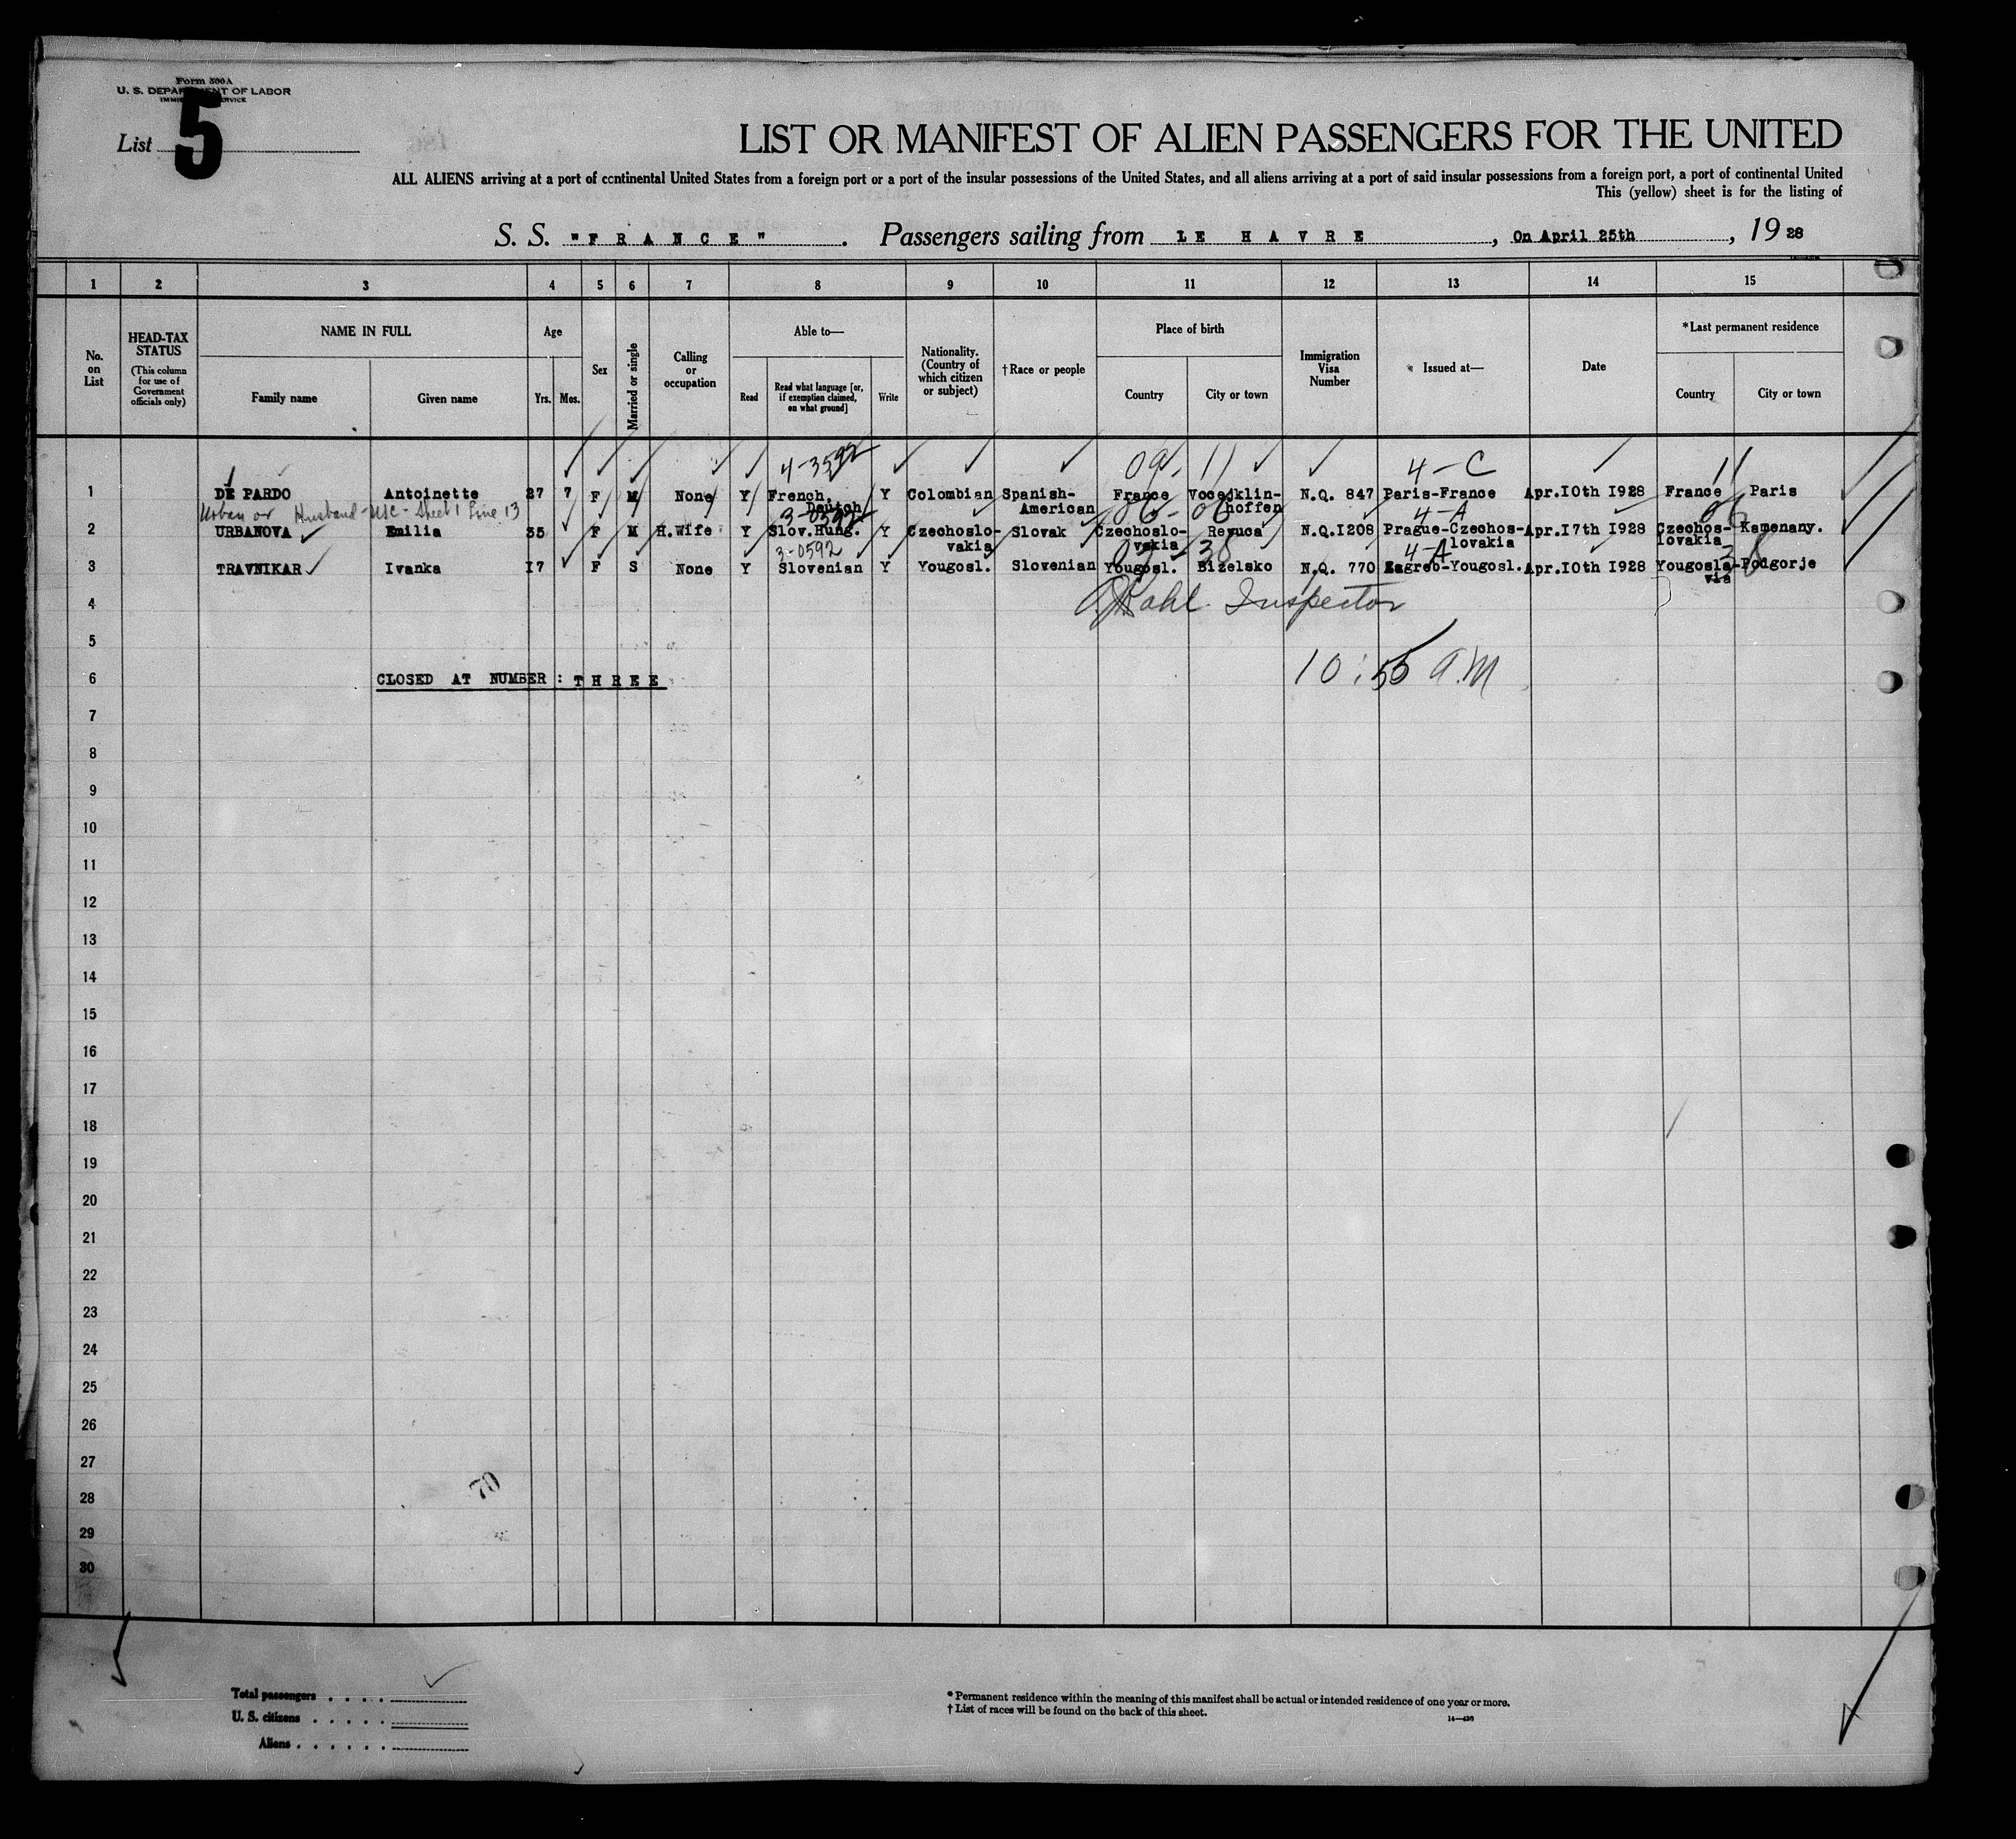 Form 500A
U. S. DEPARTMENT OF LABOR
IMMIGRATION SERVICE
List 5
LIST OR MANIFEST OF ALIEN PASSENGERS FOR THE UNITED
ALL ALIENS arriving at a port of continental United States from a foreign port or a port of the insular possessions of the United States, and all aliens arriving at a port of said insular possessions from a foreign port, a port of continental United
This (yellow) sheet is for the listing of
S. S. "FRANCE". Passengers sailing from LE HAVRE, On April 25th, 1928
1 2 3 4 5 6 7 8 9 10 11 12 13 14 15
No. on List
HEAD-TAX STATUS
(This column for use of Government officials only)
NAME IN FULL
Family name Given name
Age
Yrs. Mos.
Sex
Married or single
Calling or occupation
Able to—
Read Read what language [or, if exemption claimed, on what ground] Write
Nationality. (Country of which citizen or subject)
†Race or people
Place of birth
Country City or town
Immigration Visa Number
Issued at—
Date
*Last permanent residence
Country City or town
4-3592 09-11 4-C 11
1 DE PARDO Antoinette 27 7 F M None Y French, Deutch Y Colombian Spanish-American France Vocejklin-hoffen N.Q. 847 Paris-France Apr.10th 1928 France Paris
Urban or Husband-USC-Sheet 1 Line 13 3-0592 06-06 4-A 06
2 URBANOVA Emilia 35 F M H.Wife Y Slov.Hung. Y Czechoslo-vakia Slovak Czechoslo-vakia Revuca N.Q.1208 Prague-Czechos-lovakia Apr.17th 1928 Czechos-lovakia Kamenany.
3-0592 4-A 38
3 TRAVNIKAR Ivanka 17 F S None Y Slovenian Y Yougosl. Slovenian Yougosl. Bizelsko N.Q. 770 Zagreb-Yougosl. Apr.10th 1928 Yougosla-via Podgorje
4 Inspector
5
6 CLOSED AT NUMBER : THREE 10:55 A.M
7
8
9
10
11
12
13
14
15
16
17
18
19
20
21
22
23
24
25
26
27
28 70
29
30
Total passengers . . . .
U. S. citizens . . . . .
Aliens . . . . . .
* Permanent residence within the meaning of this manifest shall be actual or intended residence of one year or more.
† List of races will be found on the back of this sheet.